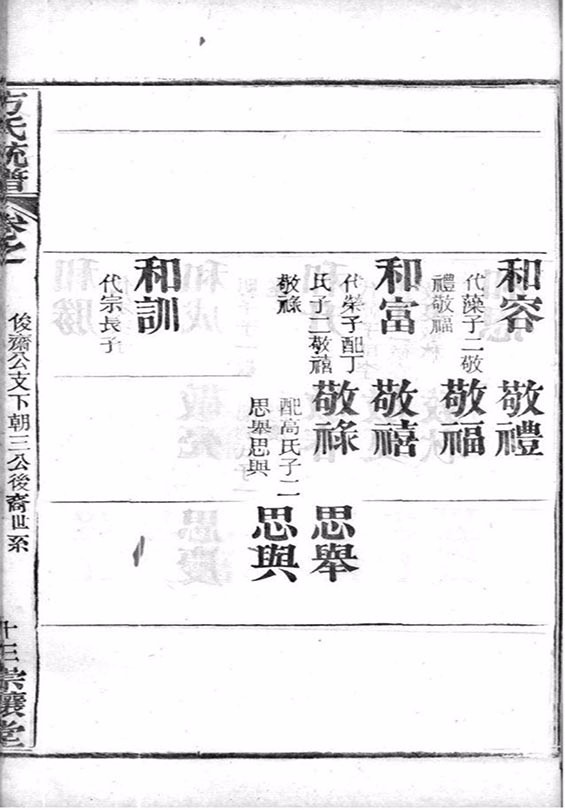 和容
代藻子二敬
禮敬福
和富
代榮子配丁
氏子二敬禧
敬祿
和訓
代宗長子
敬禮
敬福
敬禧
敬祿
配高氏子二
思舉思與
思舉
思與
方氏統譜
卷之
俊齋公支下朝三公後裔世系
十三